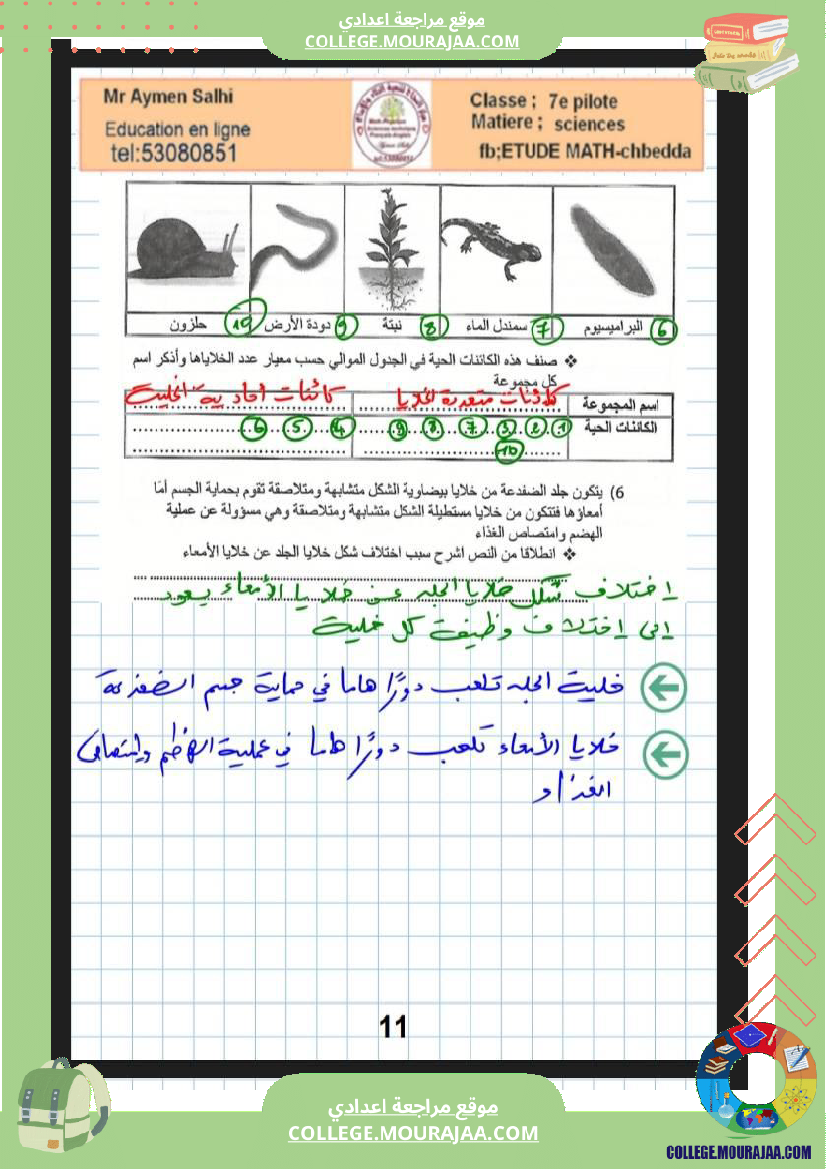 موقع مراجعة اعدادي
COLLEGE.MOURAJAA.COM
Mr Aymen Salhi
Education en ligne
tel:53080851
Classe ; 7e pilote
Matiere ; sciences
fb;ETUDE MATH-chbedda
البراميسيوم 6 سمندل الماء 7 نبتة 8 دودة الأرض 9 حلزون 10
❖ صنف هذه الكائنات الحية في الجدول الموالي حسب معيار عدد الخلاياها وأذكر اسم
كل مجموعة
اسم المجموعة كائنات متعددة الخلايا كائنات أحادية الخلية
الكائنات الحية 1 2 3 7 8 9 4 5 6
10
6) يتكون جلد الضفدعة من خلايا بيضاوية الشكل متشابهة ومتلاصقة تقوم بحماية الجسم أما
أمعاؤها فتتكون من خلايا مستطيلة الشكل متشابهة ومتلاصقة وهي مسؤولة عن عملية
الهضم وامتصاص الغذاء
❖ انطلاقا من النص اشرح سبب اختلاف شكل خلايا الجلد عن خلايا الأمعاء
اختلاف شكل خلايا الجلد عن خلايا الأمعاء يعود
إلى إختلاف وظيفة كل خلية
خلية الجلد تلعب دورًا هاما في حماية جسم الضفدعة
خلايا الأمعاء تلعب دورًا هاما في عملية الهضم وإمتصاص
الغذاء
11
موقع مراجعة اعدادي
COLLEGE.MOURAJAA.COM
COLLEGE.MOURAJAA.COM